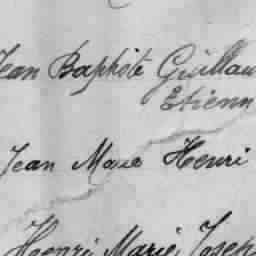 Jean Baptiste Guillau
Etienn
Jean Marie Henri
Henri Marie Josep